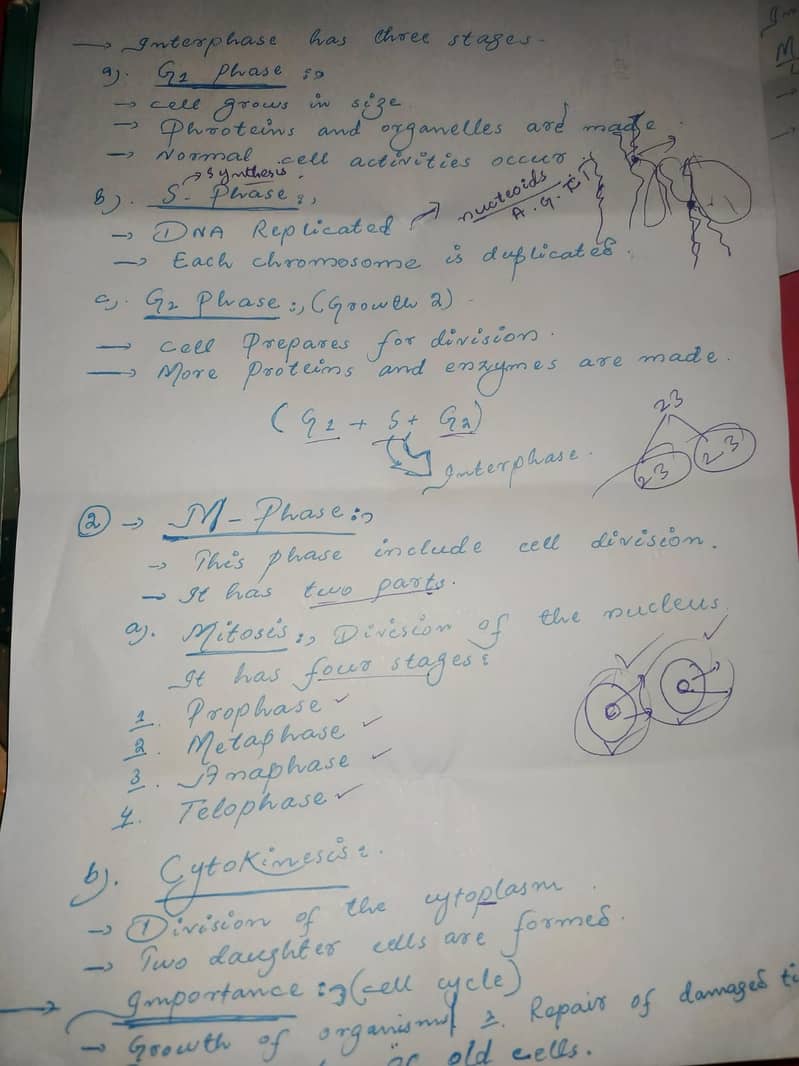 → Interphase has three stages-
a). G1 Phase :⇒
→ cell grows in size
→ Phroteins and organelles are made.
→ Normal cell activities occur
→ Synthesis.
B). S- Phase:,
→ DNA Replicated →
A. G. C T
→ Each chromosome is duplicated.
c). G2 Phase :, (Growth 2)
→ cell Prepares for division.
→ More Proteins and enzymes are made.
(G1 + S + G2)
Interphase.
23
23 23
② → M-Phase:⇒
→ This phase include cell division.
→ It has two parts.
a). Mitosis:, Division of the nucleus
It has four stages:
1. Prophase ✓
2. Metaphase ✓
3. Anaphase ✓
4. Telophase ✓
b). Cytokinesis:.
→ Division of the cytoplasm.
→ Two daughter cells are formed.
→ Importance :⇒ (cell cycle)
→ Growth of organism 2. Repair of damaged ti
old cells.